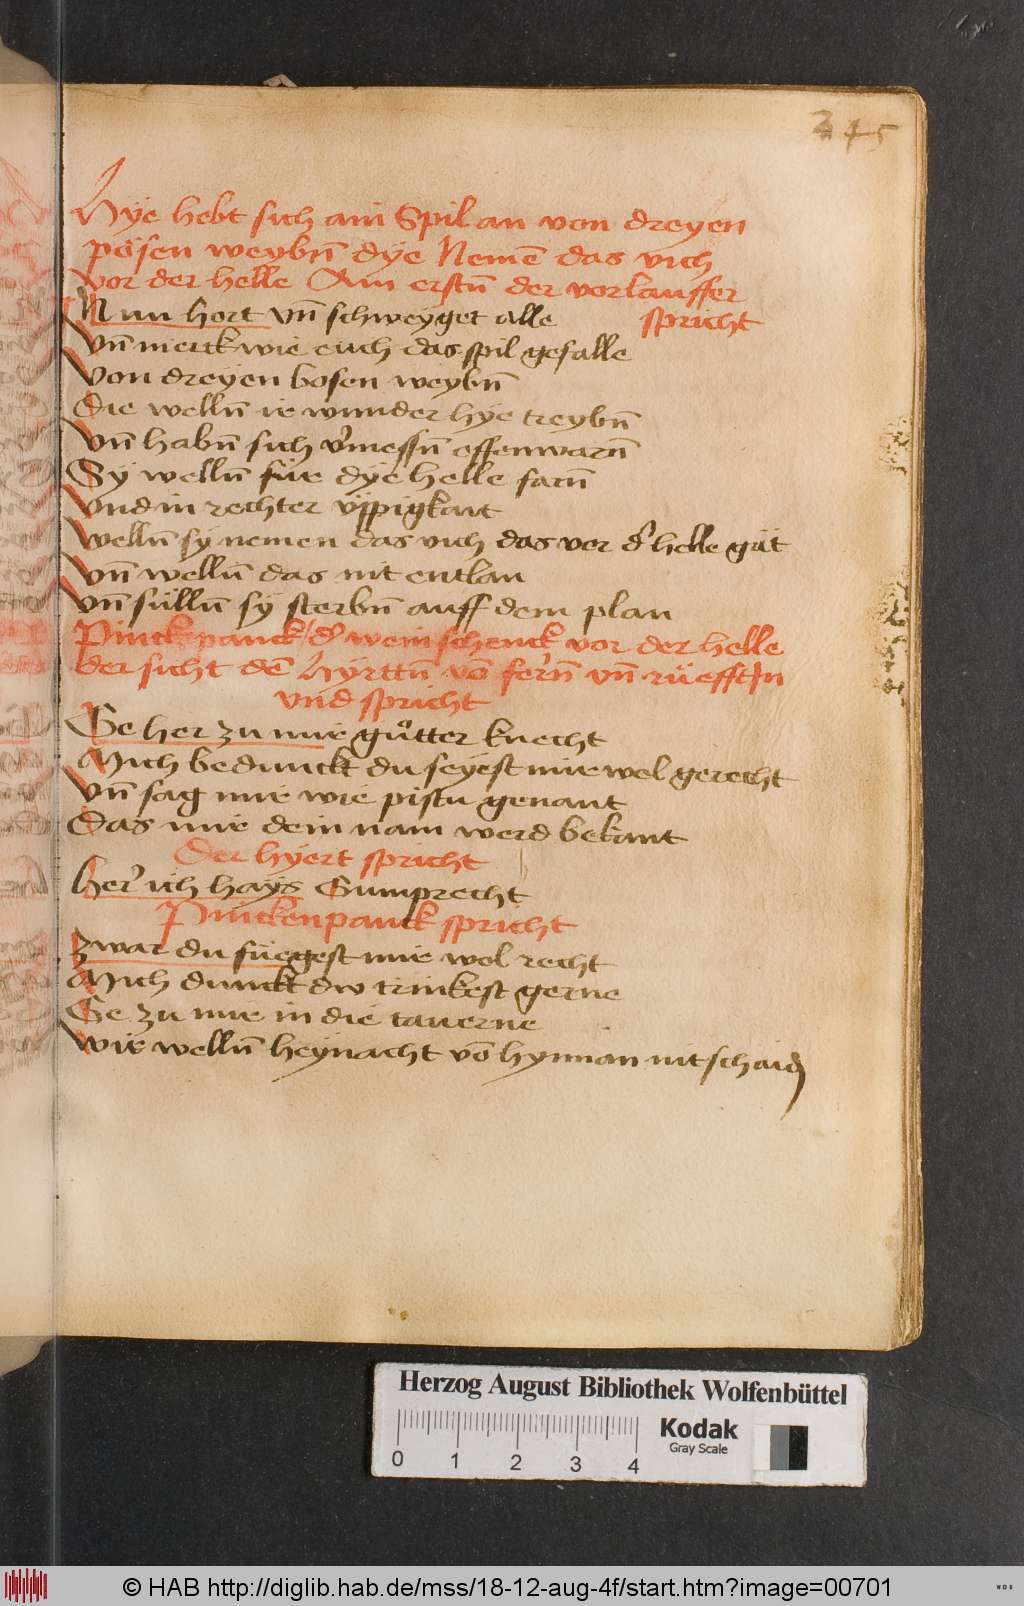 345
Hye hebt sich ain Spil an von dreyen
pösen weybn̄ dye Nemē das vich
vor der helle Am erstn̄ der vorlauffer
spricht
Nun hort vn̄ schweyget alle
vn̄ merck wie euch das spil gefalle
von dreyen bosen weybn̄
Die welln̄ ir wunder hye treybn̄
vn̄ habn̄ sich v̓messn̄ offenwarn̄
Sy welln̄ für dye helle farn̄
vnd in rechter üppigkait
welln̄ sy nemen das vich das vor d̓ helle gät
vn̄ welln̄ das nit entlan
vn̄ sülln̄ sy sterbn̄ auff dem plan
Pinckepanck d̓ weinschenck vor der helle
der sicht dē hyrttn̄ vō fern̄ vn̄ rüefft In
vnd spricht
Ge her zu mir gůtter knecht
Mich bedunckt du seyest mir wol gerecht
vn̄ sag mir wie pistu genant
Das mir dein nam werd bekant
Der hyert spricht
her̓ ich hays Gumprecht
Pinckenpanck spricht
zwar du füegest mir wol recht
Mich dunckt dw trinkest gerne
Ge zu mir in die tauerne
wir welln̄ heynacht vō hynnan nit schaidn
Herzog August Bibliothek Wolfenbüttel
0 1 2 3 4
Kodak
Gray Scale
© HAB http://diglib.hab.de/mss/18-12-aug-4f/start.htm?image=00701